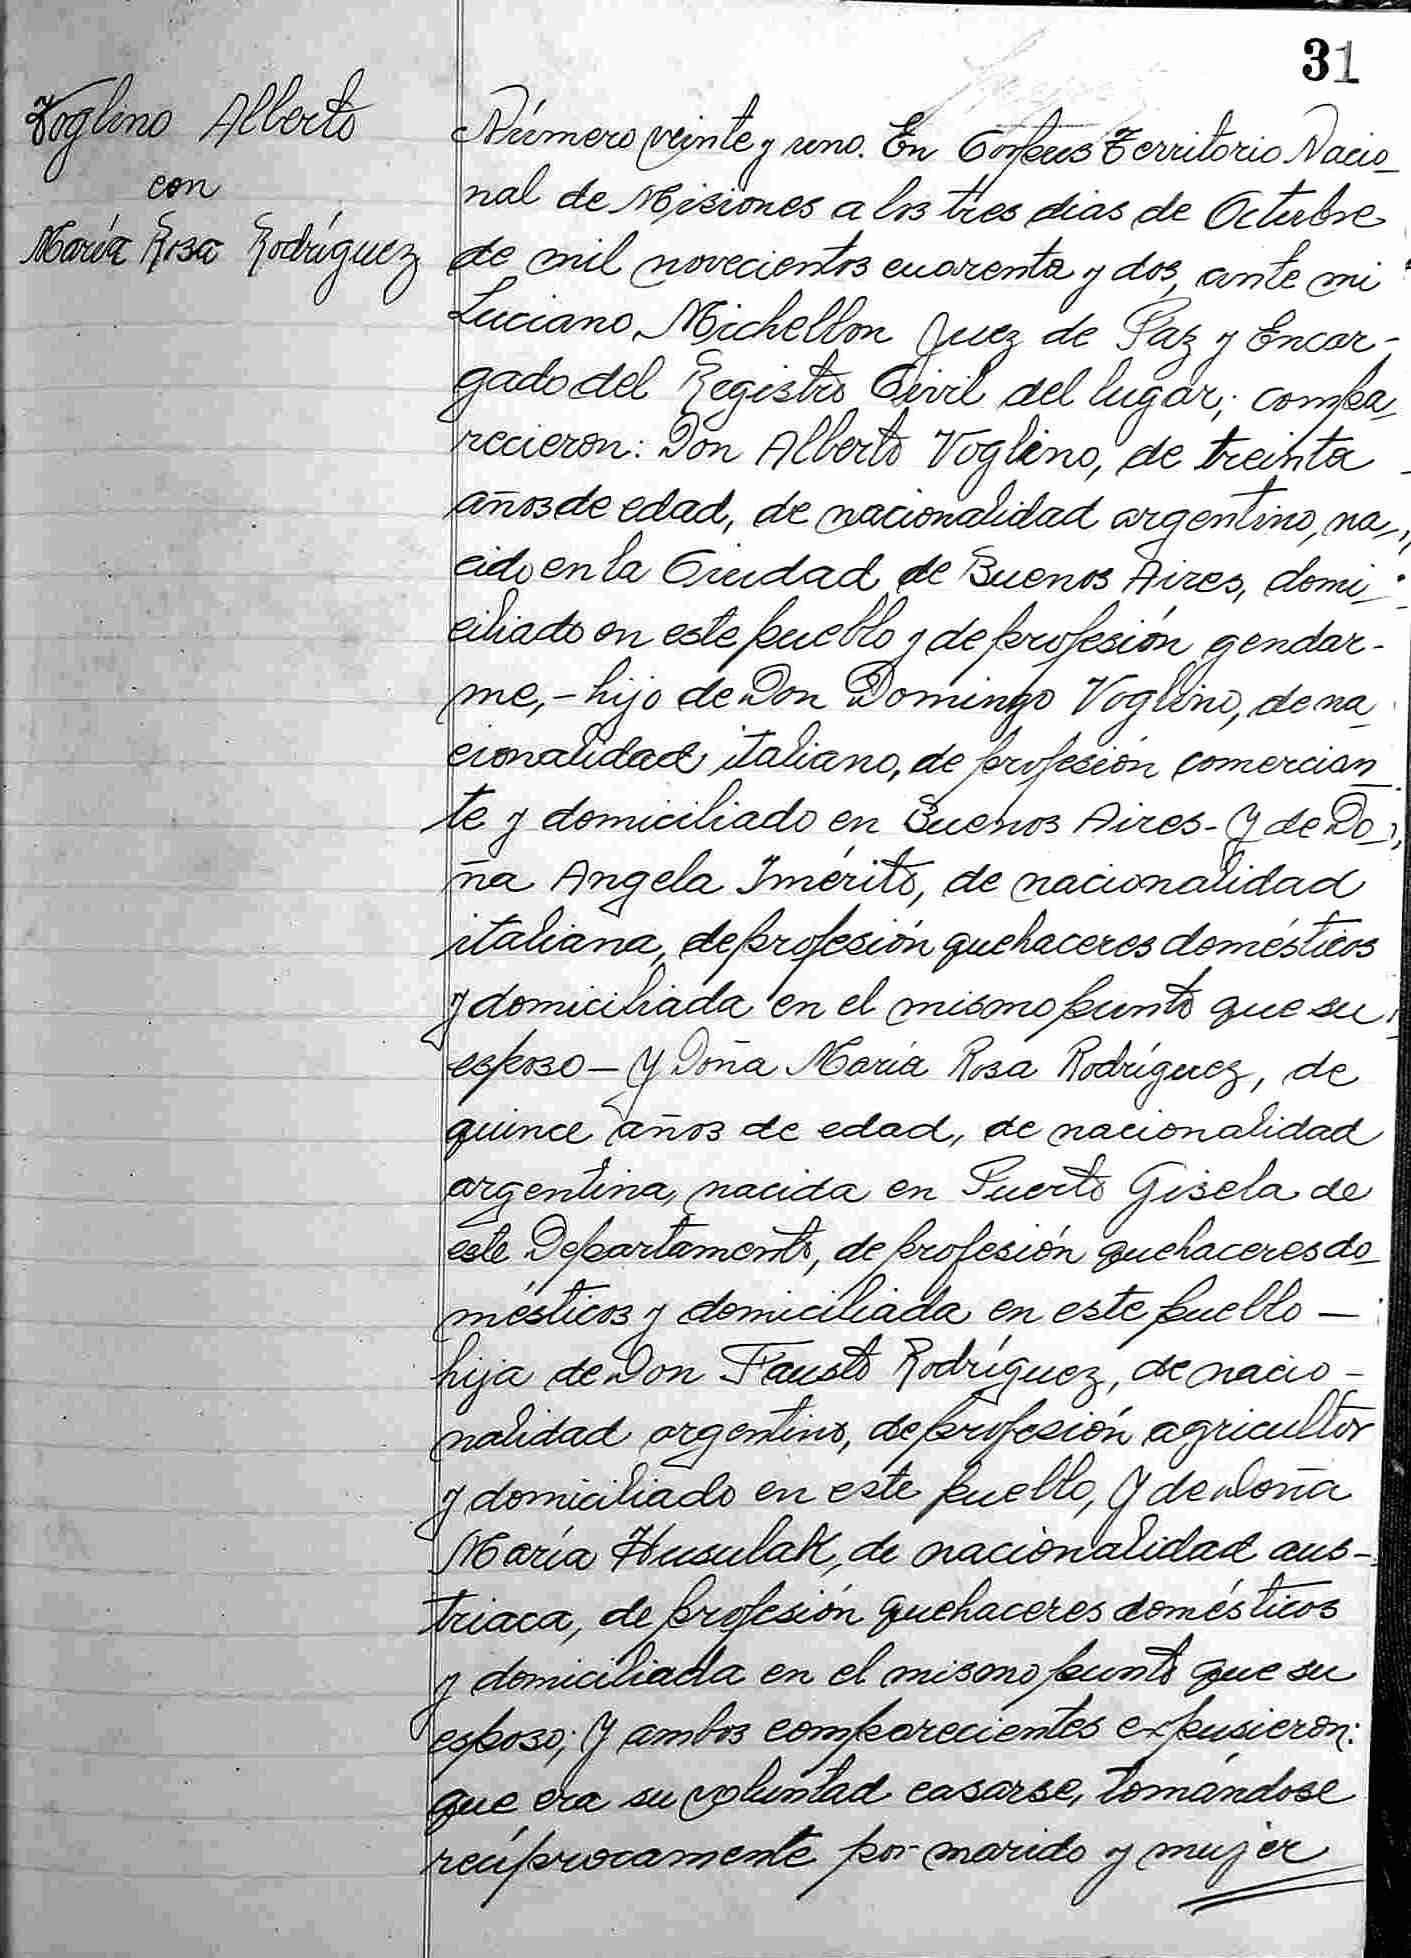 31
Voglino Alberto
con
María Rosa Rodríguez
Número veinte y uno. En Corpus Territorio Nacio_
nal de Misiones a los tres dias de Octubre
de mil novecientos cuarenta y dos, ante mi
Luciano Michellon Juez de Paz y Encar-
gado del Registro Civil del lugar; compa_
recieron: Don Alberto Voglino, de treinta
años de edad, de nacionalidad argentino, na_
cido en la Ciudad de Buenos Aires, domi_
ciliado en este pueblo y de profesión gendar-
me,- hijo de Don Domingo Voglino, de na_
cionalidad italiano, de profesión comercian_
te y domiciliado en Buenos Aires- Y de Do_
ña Angela Imérito, de nacionalidad
italiana, de profesión quehaceres domésticos
y domiciliada en el mismo punto que su
esposo — Y Doña María Rosa Rodríguez, de
quince años de edad, de nacionalidad
argentina, nacida en Puerto Gisela de
este Departamento, de profesión quehaceres do_
mésticos y domiciliada en este pueblo —
hija de Don Fausto Rodríguez, de nacio-
nalidad argentino, de profesión agricultor
y domiciliado en este pueblo, Y de Doña
María Husulak, de nacionalidad aus-
triaca, de profesión quehaceres domésticos
y domiciliada en el mismo punto que su
esposo; Y ambos comparecientes expusieron:
que era su voluntad casarse, tomándose
recíprocamente por marido y mujer